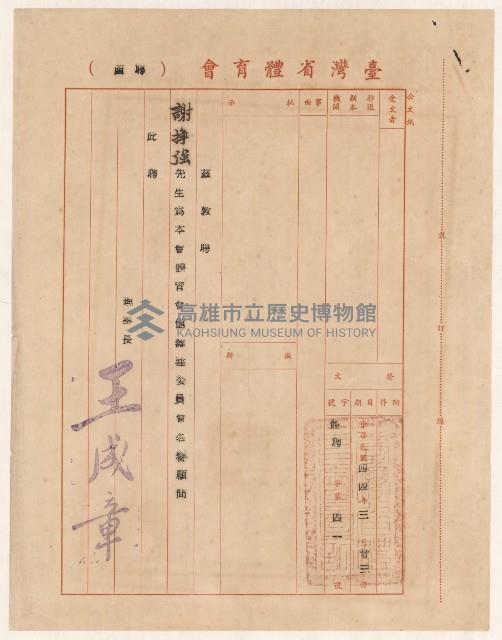 臺灣省體育會（聘函）
公文紙
受文者
抄送
副本
機關
事由
批示
擬辦
發文
附件
日期
字號
中華民國四四年三月廿三日
體聘字第四一號
茲敦聘
謝掙强先生為本會體育會
委員會名譽顧問
此聘
理事長
王成章
裝
訂
線
高雄市立歷史博物館
KAOHSIUNG MUSEUM OF HISTORY